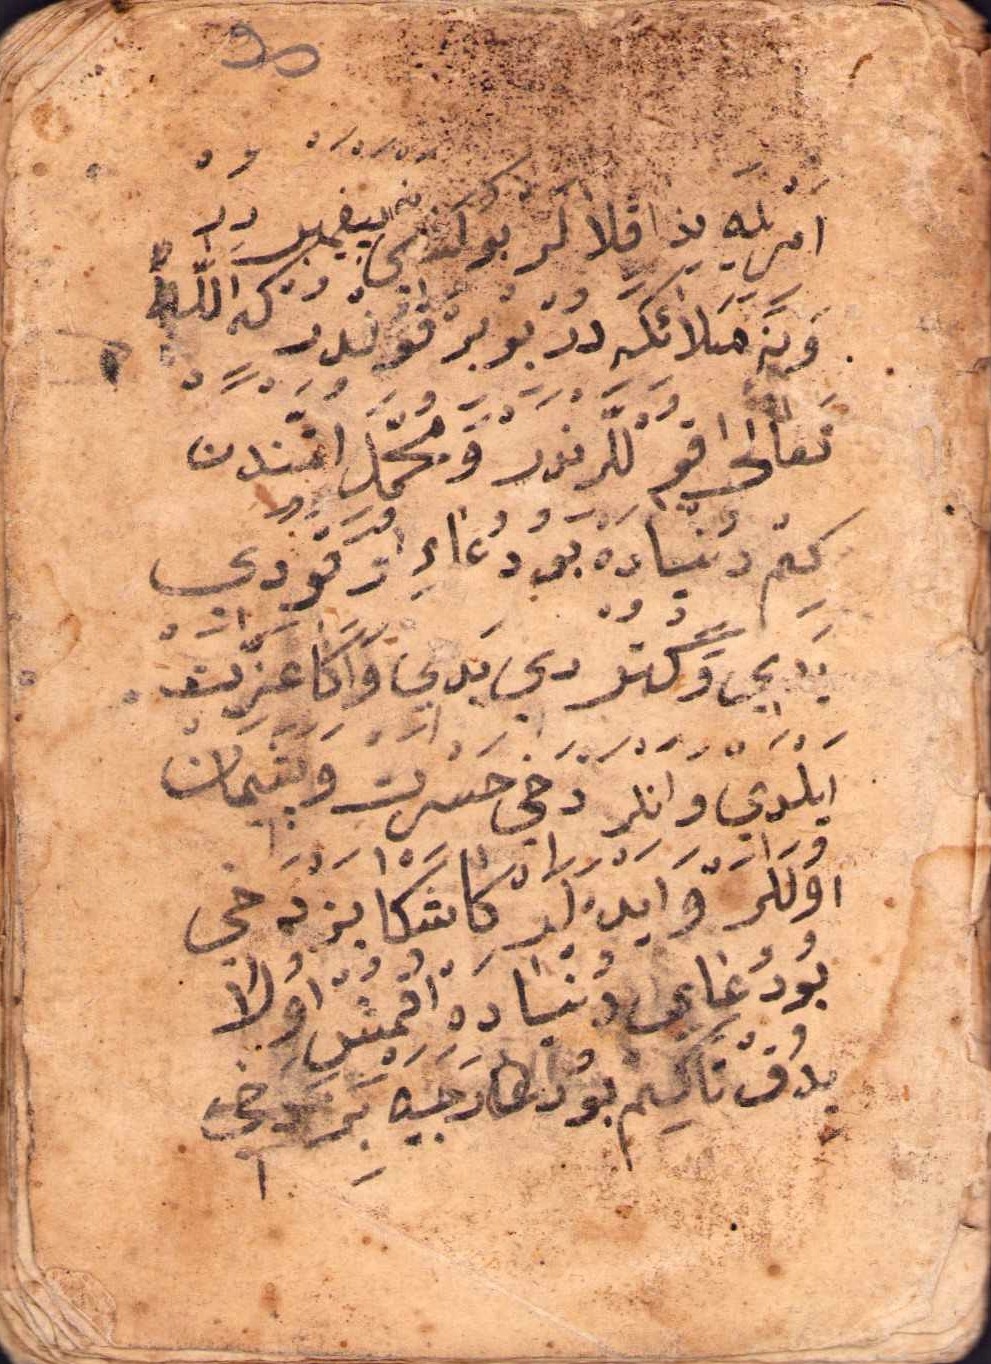 امریله یذاقلا لر بو کندی پیغمبر در
و نه ملائکه در بو بر قولندر که الله
تعالی اقو للرندر و محمد امتندن
کم دنیاده بو دعاء اوقودی
یدی و کتو ردی یدی و اکا عزت
ایلدی و انلر دخی حسرت و پشیمان
اولالر و ایده لر کاشکا بزدخی
بو دعایی دنیاده اقمش اولا
یدق تاکم بو درجیه بزدخی